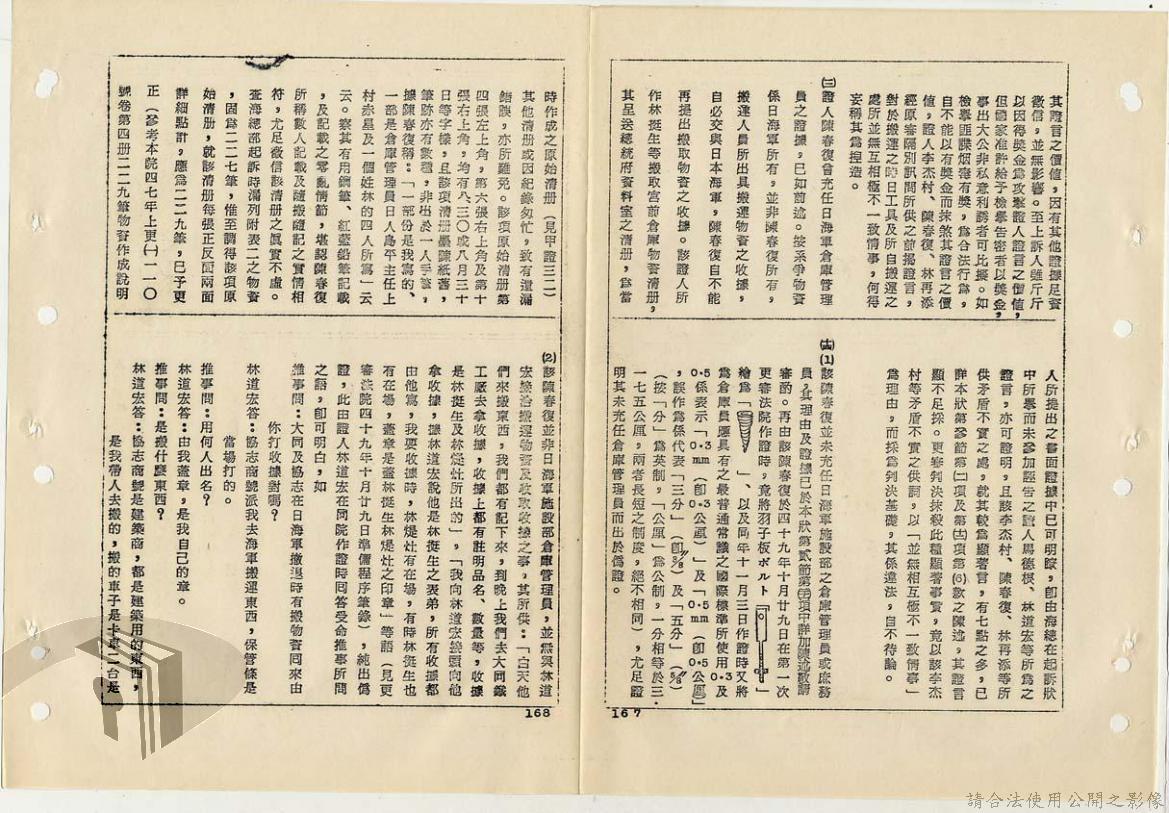 其證言之價值，因有其他證據足資
徵信，並無影響。至上訴人雖斤斤
以因得獎金為攻擊證人證言之價值，
但國家准許給予檢舉告密者以獎金，
事出大公非私意利誘者可比擬。如
檢舉匪諜烟毒有獎，為合法行為，
自不能以有獎金而抹煞其證言之價
值，證人李杰村、陳春復、林再添
經原審隔別訊問所供之前揭證言，
對於搬運之時日工具及所自搬運之
處所並無互相極不一致情事，何得
妄稱其為捏造。
㈢證人陳春復曾充任日海軍倉庫管理
員之證據，已如前述。按系爭物資
係日海軍所有，並非陳春復所有，
搬運人員所出具搬運物資之收據，
自必交與日本海軍，陳春復自不能
再提出搬取物資之收據。該證人所
作林挺生等搬取宮前倉庫物資清册，
其呈送總統府資料室之清册，為當
人所提出之書面證據中已可明瞭，即由海總在起訴狀
中所舉而未參加誣告之證人馬德模、林道宏等所為之
證言，亦可證明，且該李杰村、陳春復、林再添等所
供矛盾不實之處，就其較為顯著言，有七點之多，已
詳本狀第參節第㈡項及第㈩項第(6)款之陳述，其證言
顯不足採。更審判決抹殺此種顯著事實，竟以該李杰
村等矛盾不實之供詞，以「並無相互極不一致情事」
為理由，而採為判決基礎，其係違法，自不待論。
(1)該陳春復並未充任日海軍施設部之倉庫管理員或庶務
員，其理由及證據已於本狀第貳節第㈣項中詳加陳述敬請
審酌。再由該陳春復於四十九年十月廿九日在第一次
更審法院作證時，竟將羽子板ボルト「」
繪為「」、以及同年十一月三日作證時又將
為倉庫員應具有之最普通常識之國際標準所使用0.3及
0.5係表示「0.3mm（即0.3公厘）」及「0.5mm（即0.5公厘）」
，誤作為係代表「三分」（即3/8"）及「五分」（5/8"）
（按「分」為英制，「公厘」為公制，一分相等於三．
一七五公厘，兩者長短之制度，絕不相同），尤足證
明其未充任倉庫管理員而出於偽證。
167
時作成之原始清册（見甲證三二）
其他清册或因紀錄匆忙，致有遺漏
錯誤，亦所難免。該項原始清册第
四張左上角，第六張右上角及第十
張右上角，均有八三〇或八月三十
日等字樣，且該項清册墨陳紙舊，
筆跡亦有數種，非出於一人手筆，
據陳春復稱：「一部份是我寫的、
一部是倉庫管理員日人島平主任上
村赤星及一個姓林的四人所寫」云
云。察其有用鋼筆、紅藍鉛筆記載
，及記載之零亂情節，堪認陳春復
所稱數人記載及隨搬隨記之實情相
符，尤足徵信該清册之眞實不虛。
查海總部起訴時漏列附表二之物資
，固為二二七筆，惟至調得該項原
始清册，就該清册每張正反面兩面
詳細點計，應為二二九筆，已予更
正（參考本院四七年上更㈠一一〇
號卷第四册二二九筆物資作成說明
(2)該陳春復並非日海軍施設部倉庫管理員，並無與林道
宏接洽搬運物資及收取收據之事，其所供：「白天他
們來搬東西，我們都有記下來，到晚上我們去大同鐵
工廠去拿收據，收據上都有註明品名、數量等，收據
是林挺生及林煶灶所出的」，「我向林道宏接頭向他
拿收據，據林道宏說他是林挺生之表弟，所有收據都
由他寫，我要收據時，林煶灶有在場，有時林挺生也
有在場，蓋章是蓋林挺生林煶灶之印章」等語（見更
審法院四十九年十月廿九日準備程序筆錄），純出偽
證，此由證人林道宏在同院作證時回答受命推事所問
之語，卽可明白，如
推事問：大同及協志在日海軍撤退時有搬物資回來由
你打收據對嗎？
林道宏答：協志商號派我去海軍搬運東西，保管條是
當場打的。
推事問：用何人出名？
林道宏答：由我蓋章，是我自己的章。
推事問：是搬什麼東西？
林道宏答：協志商號是建築商，都是建築用的東西，
是我帶人去搬的，搬的車子是卡車二台是
168
請合法使用公開之影像